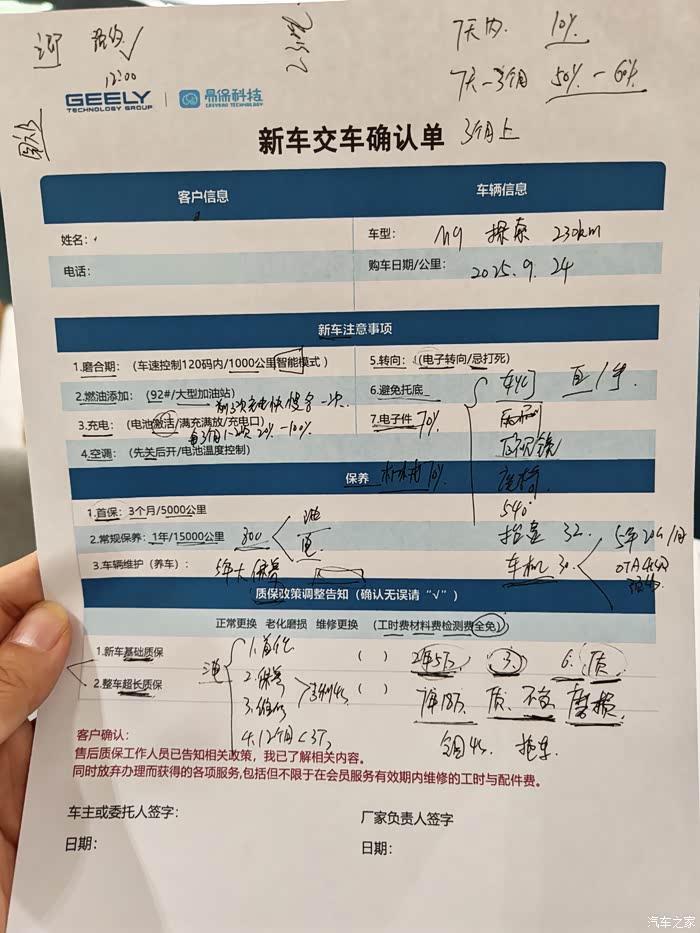 7天内 10%
12:00
7天-3个月 50%-60%
GEELY
TECHNOLOGY GROUP
易保科技
新车交车确认单
3个月上
客户信息 车辆信息
姓名： 车型： M9 探索 230km
电话： 购车日期/公里： 2025.9.24
新车注意事项
1.磨合期：（车速控制120码内/1000公里智能模式） 5.转向：（电子转向/忌打死）
2.燃油添加：（92#/大型加油站） 6.避免托底
前3次充电快慢各一次
3.充电：（电池激活/满充满放/充电口） 7.电子件 70%
每3个月1-2次 20%-100%
4.空调：（先关后开/电池温度控制）
后视镜
座椅
540°
保养
1.首保：3个月/5000公里
2.常规保养：1年/15000公里 300 油 电
3.车辆维护（养车）： 5年大保养
车机 30.
质保政策调整告知（确认无误请“√”）
正常更换 老化磨损 维修更换 （工时费材料费检测费全免）
1.新车基础质保 （ ） 2年5万 3. 6. 质
2.整车超长质保 （ ） 7年18万. 质. 不含 磨损
2.保养
4.12个月<3万
全国4s 拖车
客户确认：
售后质保工作人员已告知相关政策，我已了解相关内容。
同时放弃办理而获得的各项服务,包括但不限于在会员服务有效期内维修的工时与配件费。
车主或委托人签字： 厂家负责人签字
日期： 日期：
汽车之家